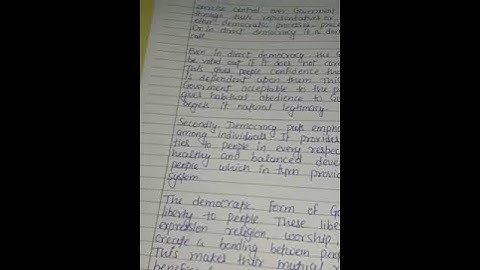 exercise control over Government
through their representatives or
other democratic process
Or in direct democracy it is
call
Even in direct democracy. the G
be voted out if it does not
This gives people confidence
is dependent upon them. This
Goverment acceptable to the
gives habitual obedience to G
begets it natural legitimacy
Secondly Democracy puts emph
among individuals It provides
ties to people in every respec
healthy and balanced deve
people which in turn provid
system.
The democratic. form of Go
liberty to people These libe
expression religion, worship,
create a bonding between peo
This makes their mutual